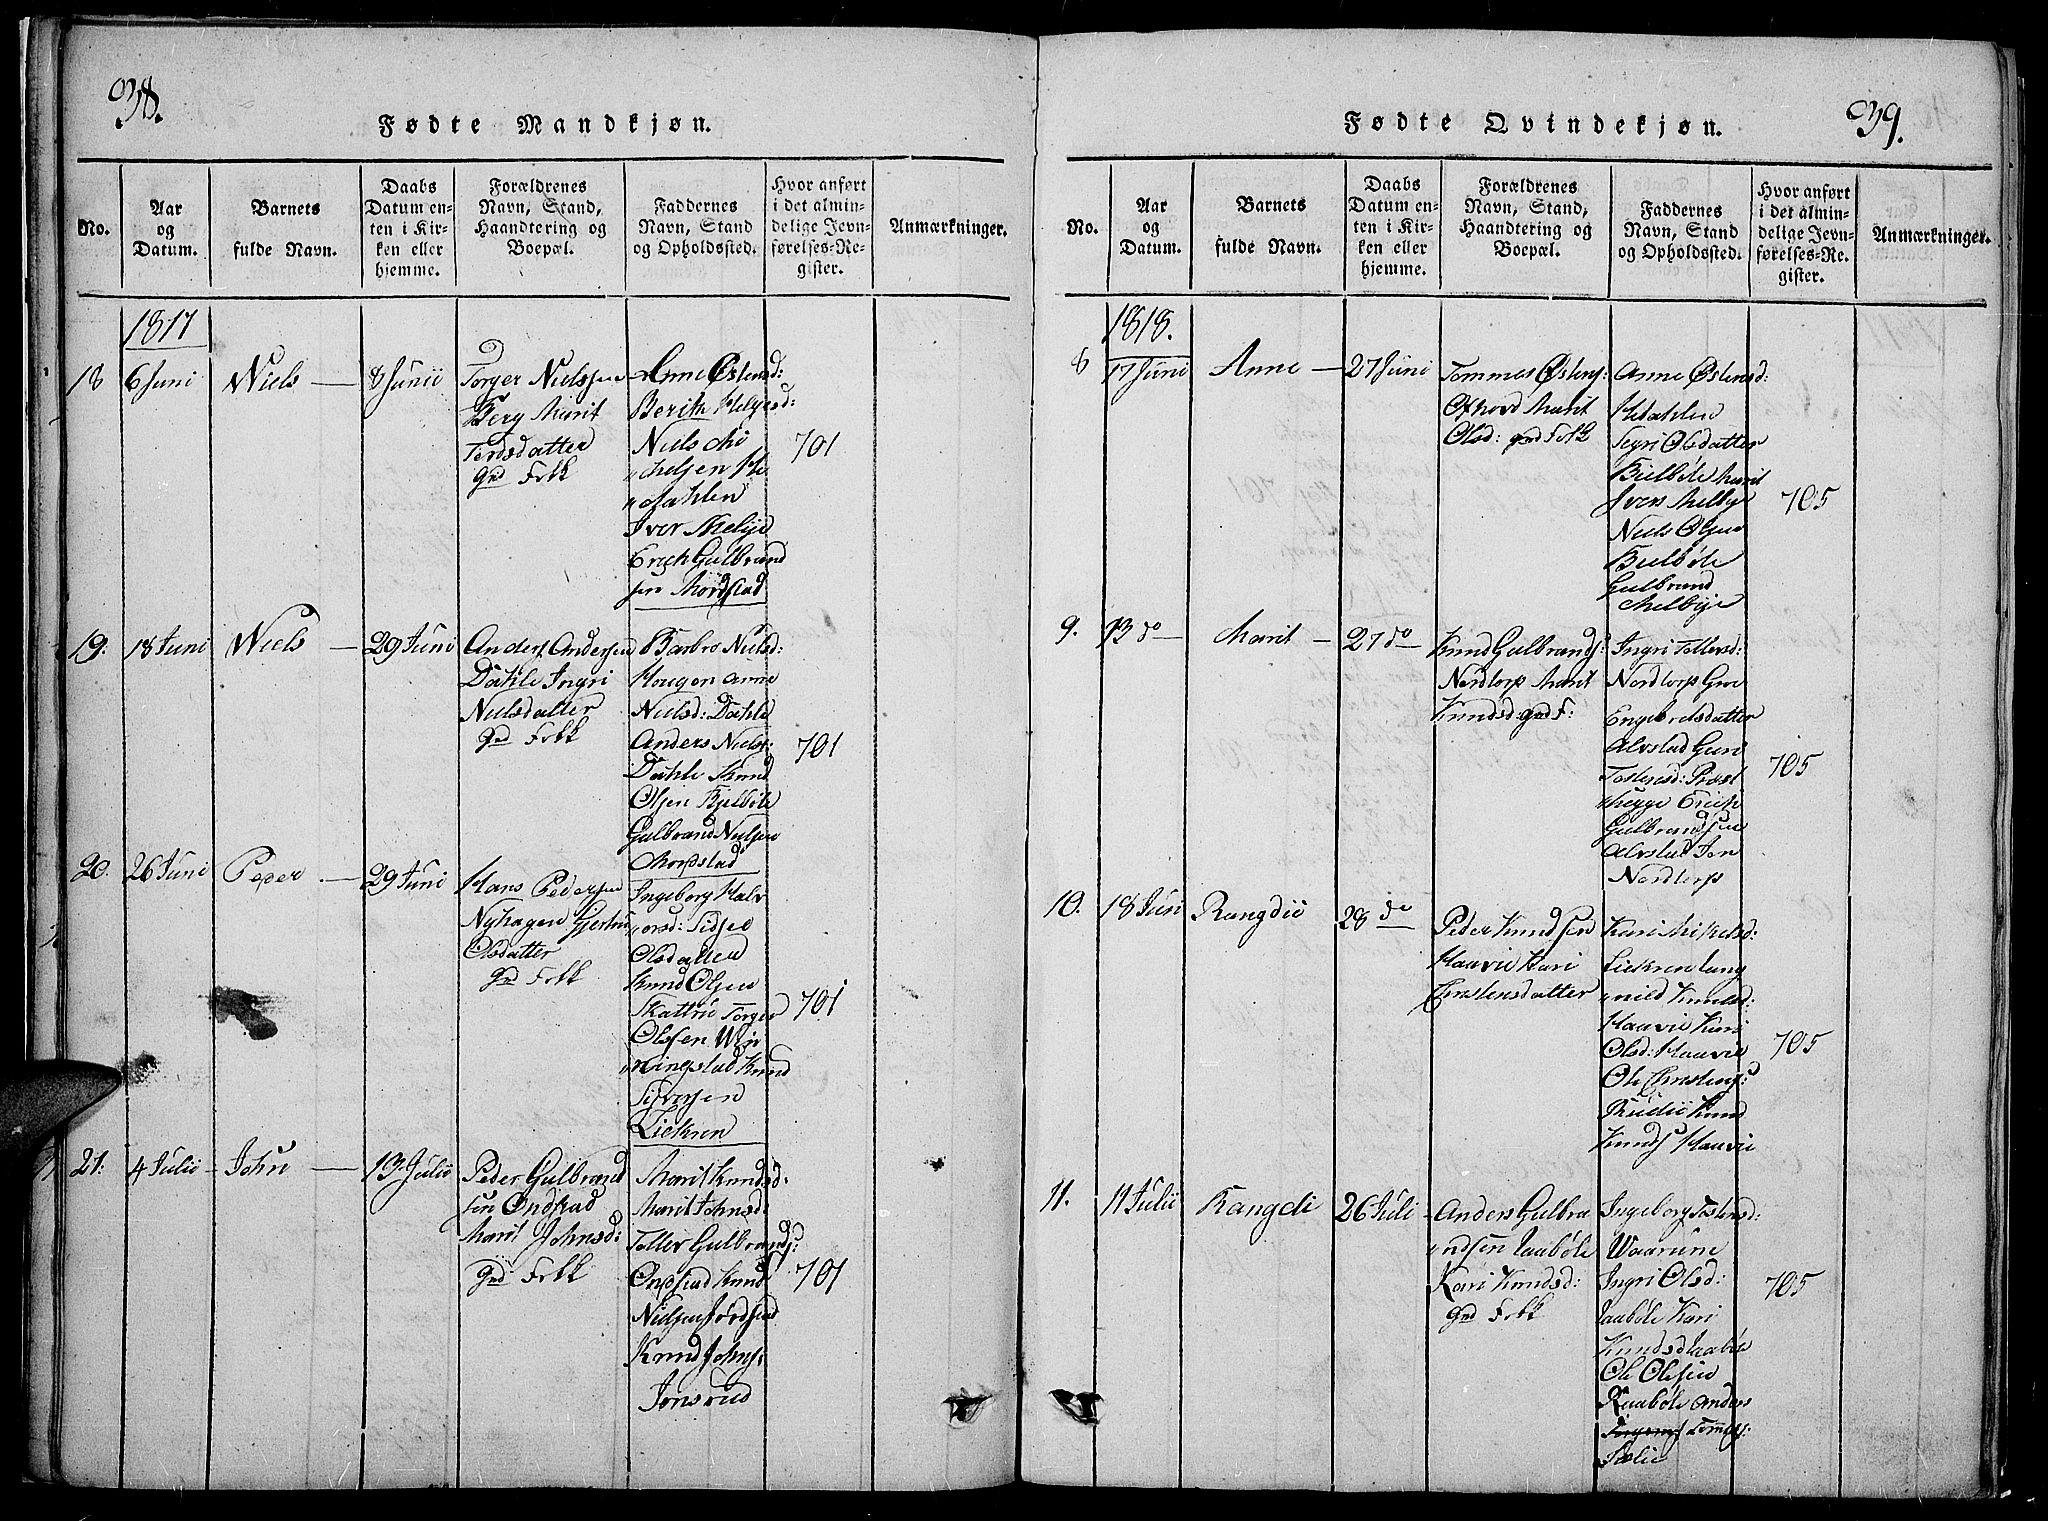 38.
Fødte Mandkjøn.
No.
Aar
og
Datum.
Barnets
fulde Navn.
Daabs
Datum en-
ten i Kir-
ken eller
hjemme.
Forældrenes
Navn, Stand,
Haandtering og
Boepæl.
Faddernes
Navn, Stand
og Opholdssted.
Hvor anført
i det almin-
delige Jevn-
førelses-Re-
gister.
Anmærkninger.
1817
18
6 Juni
Niels
8 Junii
Torger Nielssen
Berg Marit
Tordsdatter
Grd Folk
Anne Østensd:
Berith Helgesd:
Niels Mi
„chelsen He
„dahlen
Iver Melbye
Erich Gulbrand
sen Mordstad
701
19.
18 Juni
Niels
29 Juni
Anders Andersen
Dahle Ingri
Nielsdatter
Grd Folk
Barbro Nielsd:
Hougen Anne
Nielsd: Dahle
Anders Niels:
Dahle Knud
Olsen Bielbøle
Gulbrand Nielsen
Morstad
701
20.
26 Juni
Peder
29 Juni
Hans Pedersen
Nyhagen Gjertru
Olsdatter
Grd Folk
Ingeborg Halv
„orsd: Sidsee
Olsdatter
Knud Olsen
Skattru Torger
Olssen Win
„ningstad Knud
Siversen
Liekren
701
21.
4 Julii
John
13 Julii
Peder Gulbrand
sen Ondstad
Marit Johnsd:
Grd Folk
Marit Knudsd:
Marit Johnsd
Toller Gulbrands:
Ondstad Knud
Nielsen Jordstad
Knud Johns:
Jonsrud
701
39.
Fødte Qvindekjøn.
No.
Aar
og
Datum.
Barnets
fulde Navn.
Daabs
Datum en-
ten i Kir-
ken eller
hjemme.
Forældrenes
Navn, Stand,
Haandtering og
Boepæl.
Faddernes
Navn, Stand
og Opholdssted.
Hvor anført
i det almin-
delige Jevn-
førelses-Re-
gister.
Anmærkninger.
1818.
8
17 Juni
Anne
27 Juni
Tommes Østens:
Marit
Olsd: grd Folk
Anne Østensd:
Hedahlen
Segri Olsdatter
Bielbøle Marit
Ivers Melbye
Niels Olsen
Bielbøle
Gulbrand
Melbye
705
9.
13 do
Marit
27 do
Knud Gulbrands:
Nordtorp Marit
Knudsd: grd F:
Ingri Tollersd:
Nordtorp Groe
Engebretsdatter
Alvstad Guri
Tostensd: Præst
„hegge Erich
Gulbrandsen
Alvstad Jon
Nordtorp
705
10.
18 Juni
Rangdii
28 do
Peder Knudsen
Haavie Kari
Christensdatter
Kari Mikelsd:
Liekren Jung
„nild Knudsd:
Haavie Kari
Olsd: Haavie
Ole Christens:
Rudii Knud
Knuds Haavie
705
11.
11 Julii
Rangdi
26 Juli
Anders Gulbra
„ndsen Raabøle
Kari Knudsd:
Grd Folk
Ingeborg Tostensd:
Waarum
Ingri Olsd:
Raabøle Kari
Knudsd Raabøle
Ole Olesen
Raabøle Anders
Tomes:
705